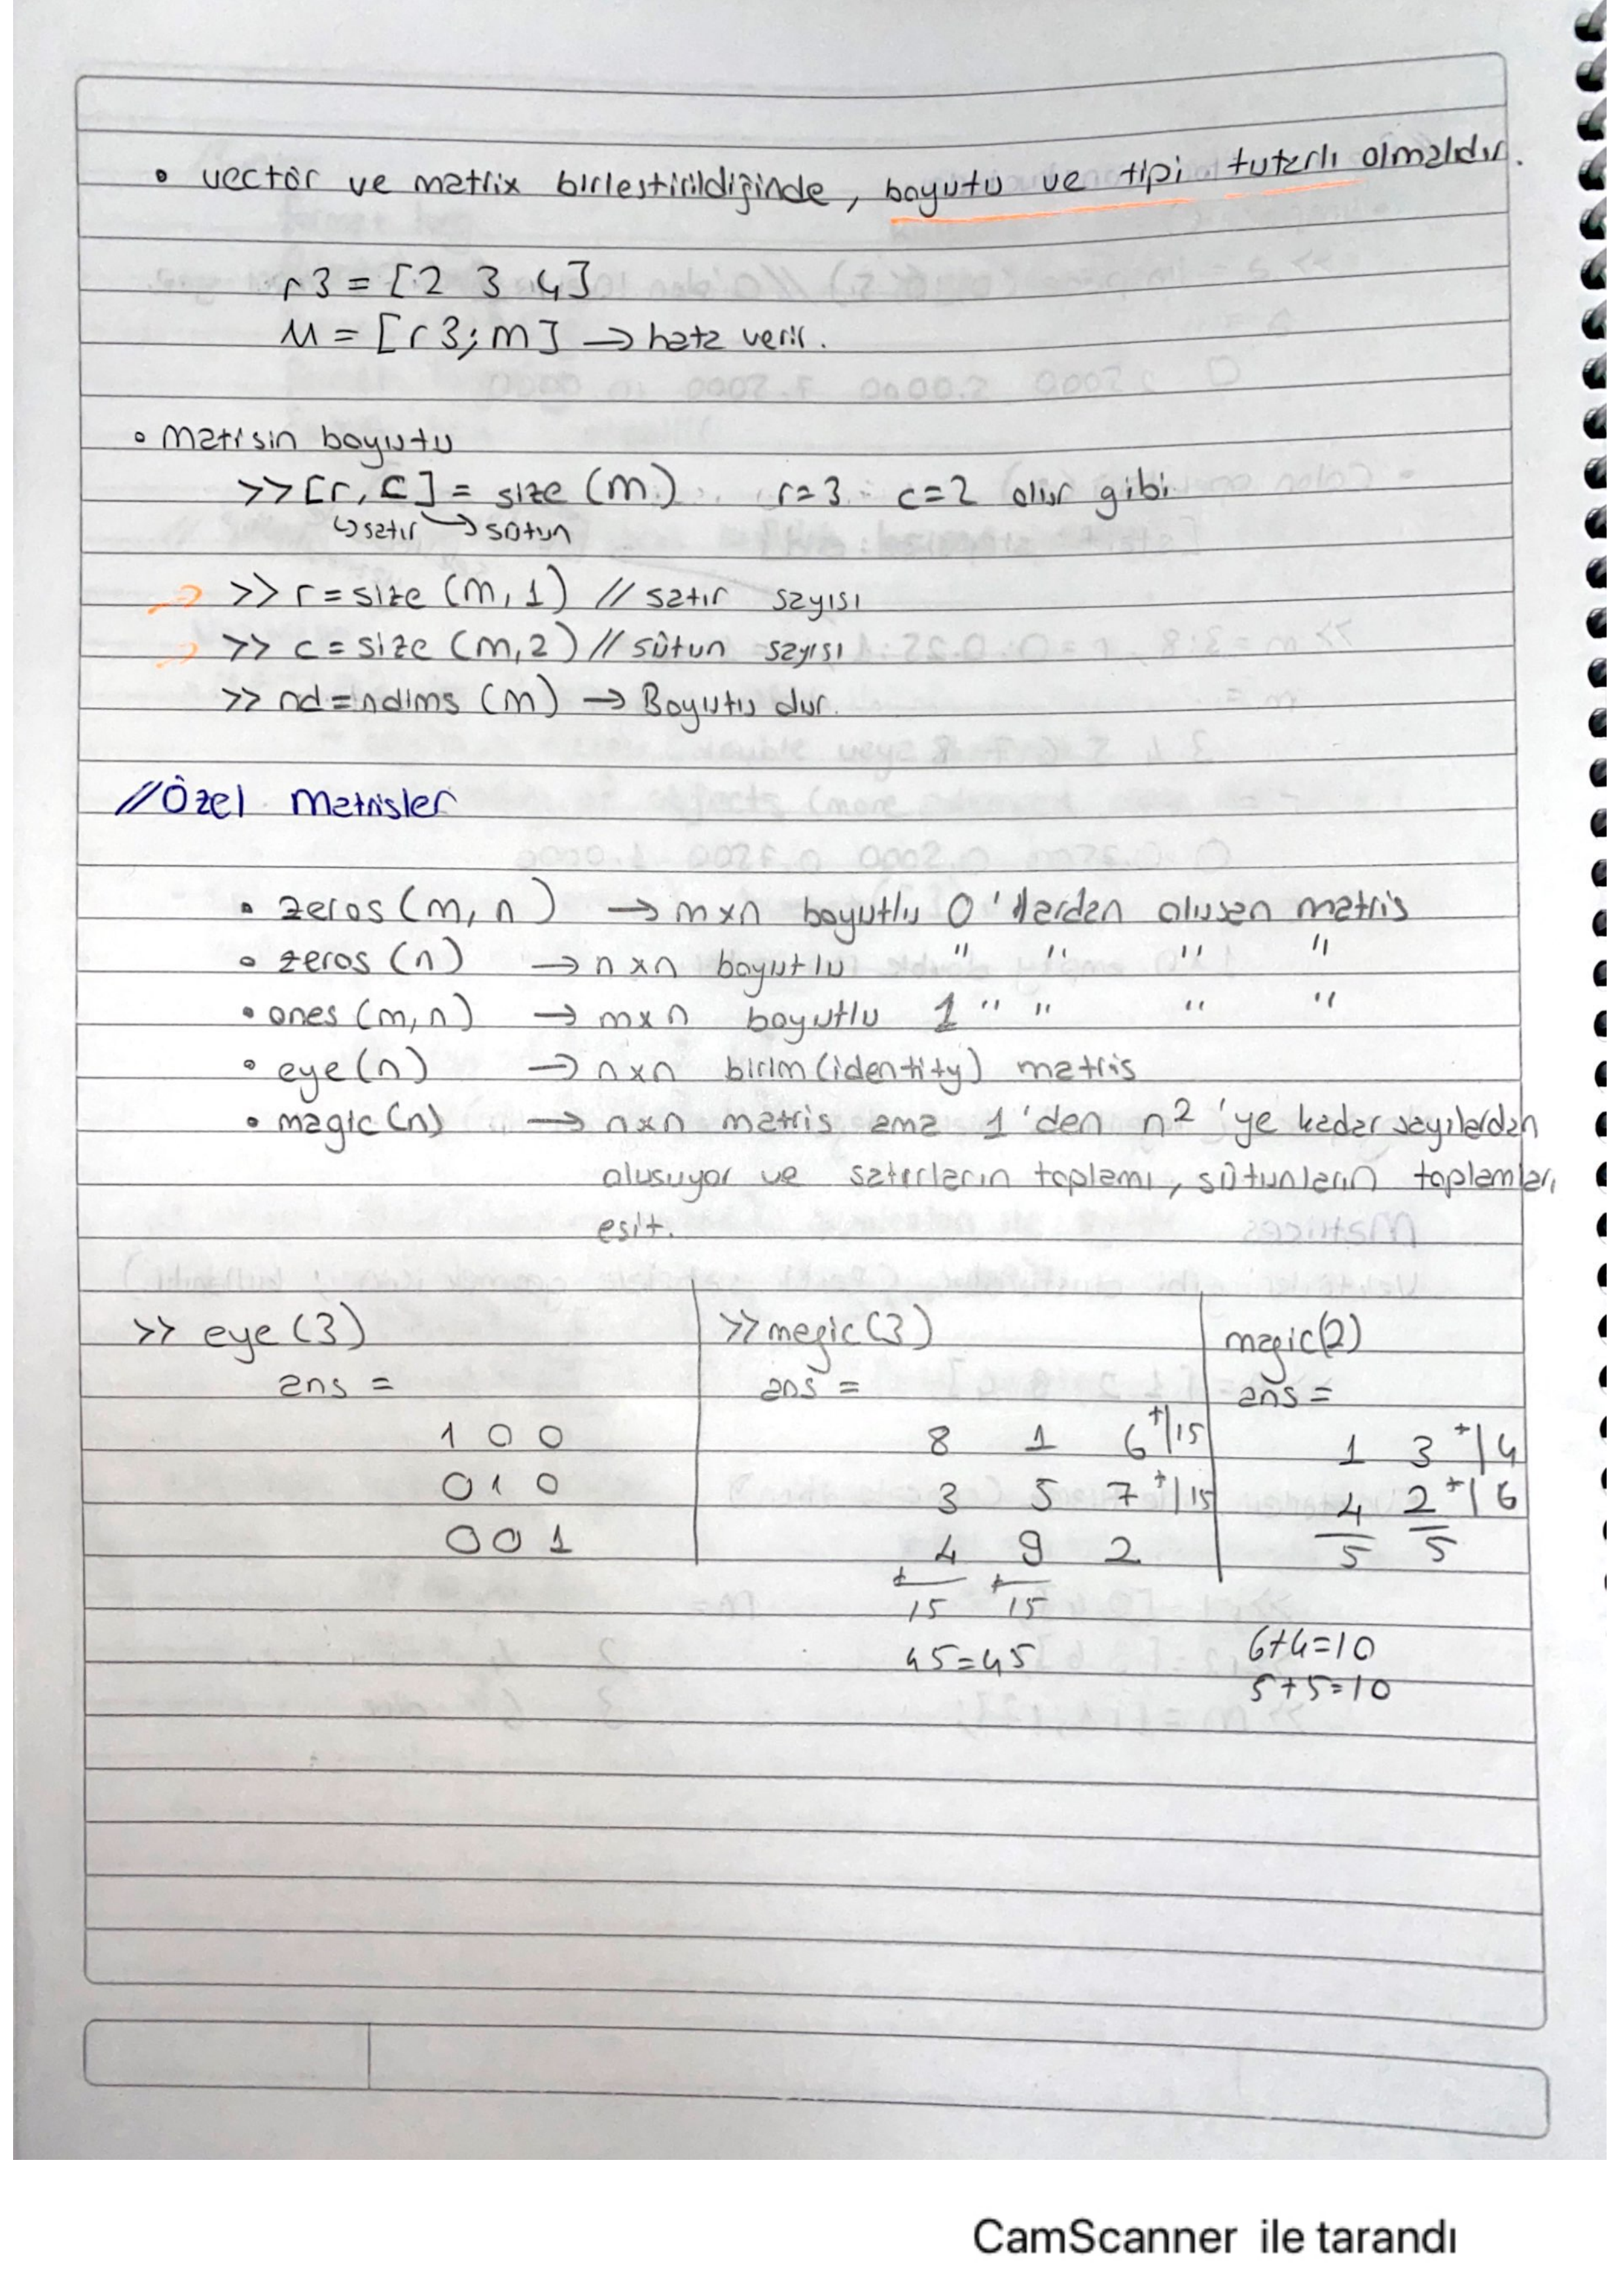 • vectör ve matrix birlestirildiğinde, boyutu ve tipi tutarlı olmalıdır.
r3 = [2 3 4]
M = [r3; m] → hata verir.
• Matisin boyutu
>> [r, c] = size (m) r=3 c=2 olur gibi
↳satır → sütun
>> r = size (m, 1) // satır sayısı
>> c = size (m, 2) // sütun sayısı
>> nd = ndims (m) → Boyutu dur.
// Özel Matrisler
• zeros (m, n) → mxn boyutlu 0 'lardan olusan matris
• zeros (n) → nxn boyutlu " " " "
• ones (m, n) → mxn boyutlu 1 " " " "
• eye (n) → nxn birim (identity) matris
• magic (n) → nxn matris ama 1 'den n² 'ye kadar sayılardan
olusuyor ve satırların toplamı, sütunların toplamları
esit.
>> eye (3) >> megic (3) magic(2)
ans = ans = ans =
1 0 0 8 1 6 +/15 1 3 +/4
0 1 0 3 5 7 +/15 4 2 +/6
0 0 1 4 9 2 5 5
+ +
15 15
45=45 6+4=10
5+5=10
CamScanner ile tarandı